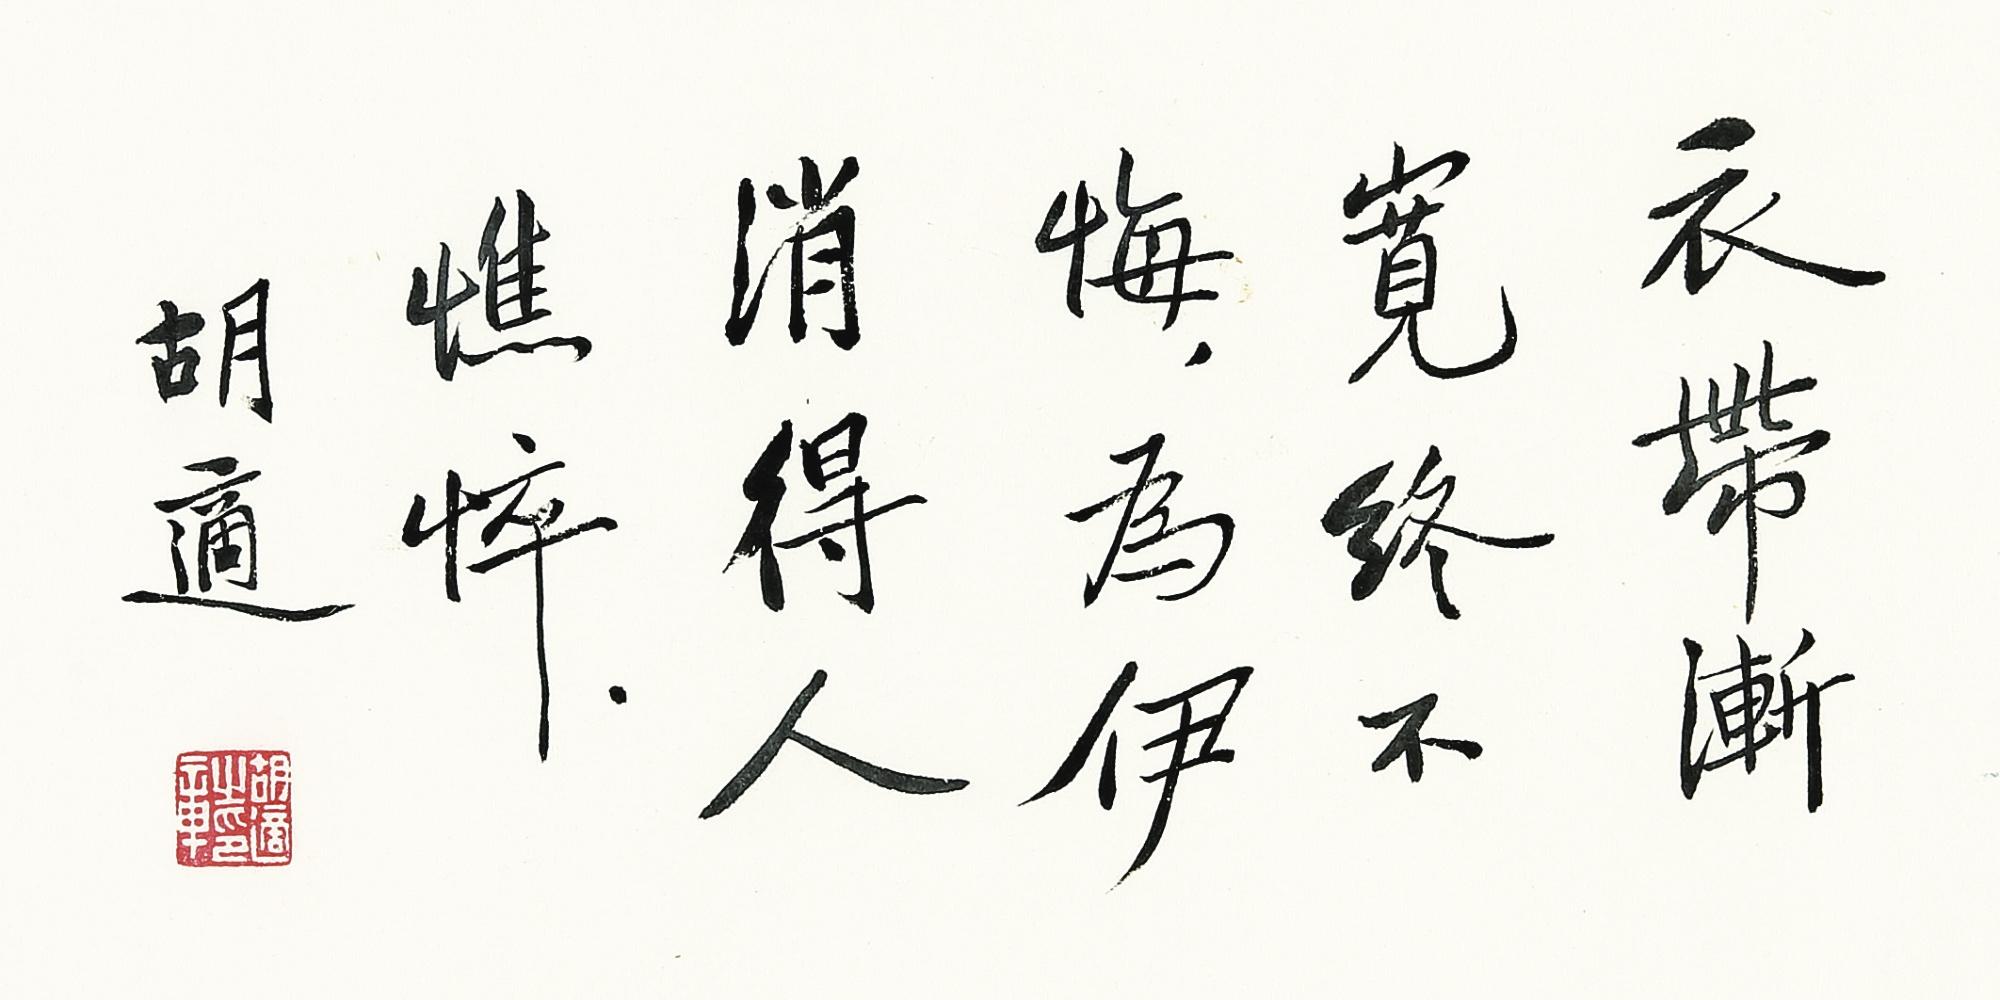 衣帶漸
寬終不
悔．為伊
消得人
憔悴．
胡適
胡適
之印